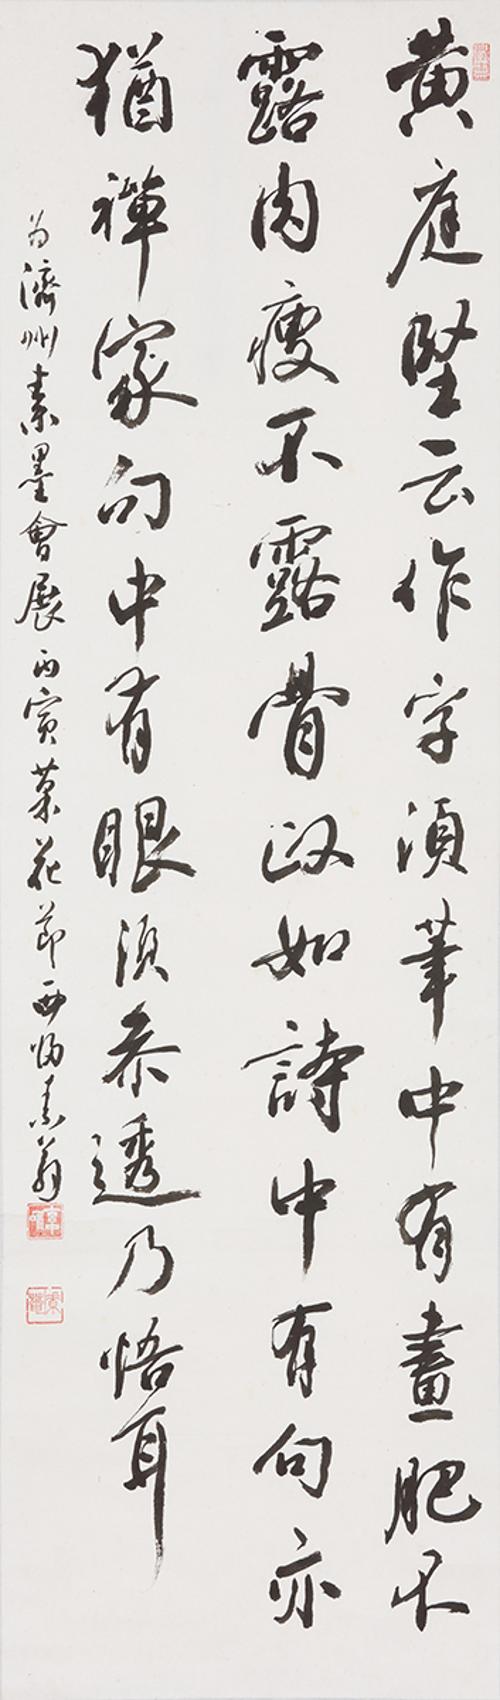 黃庭堅云作字須筆中有畫肥不
露肉瘦不露骨政如詩中有句亦
猶禪家句中有眼須參透乃悟耳
為濟州素墨會展 丙寅菊花節 西歸素翁